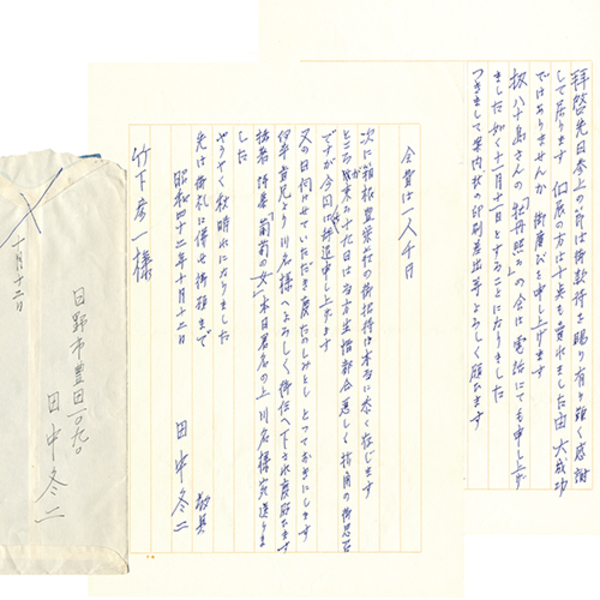 拝啓 先日参上の節は御歓待を賜り有り難く感謝
して居ります 個展の方は十点も売れました由 大成功
ではありませんか 御慶びを申し上げます
扨 八十島さんの「牡丹照る」の会は電話にても申し上げ
ました如く十一月十一日とすることになりました
つきまして案内状の印刷差出等よろしく願ひます
会費は一人千円
次に箱根豊栄荘の御招待は本当に忝く存じます
ところが 末の二十九日は当方生憎都合悪しく 折角の御思召
ですが今回は御辞退申し上げます
又の日伺はせていただき度たのしみとしとつておきにします
伊平貴兄より川名様へよろしく御伝へ下され度願ひます
拙著 詩集「葡萄の女」本日署名の上 川名様宛送りま
した
やうやく秋晴れになりました
先は御礼に併せ御願まで
敬具
昭和四十二年十月十二日
田中冬二
竹下彦一様
十月十二日
日野市豊田一〇九〇
田中冬二